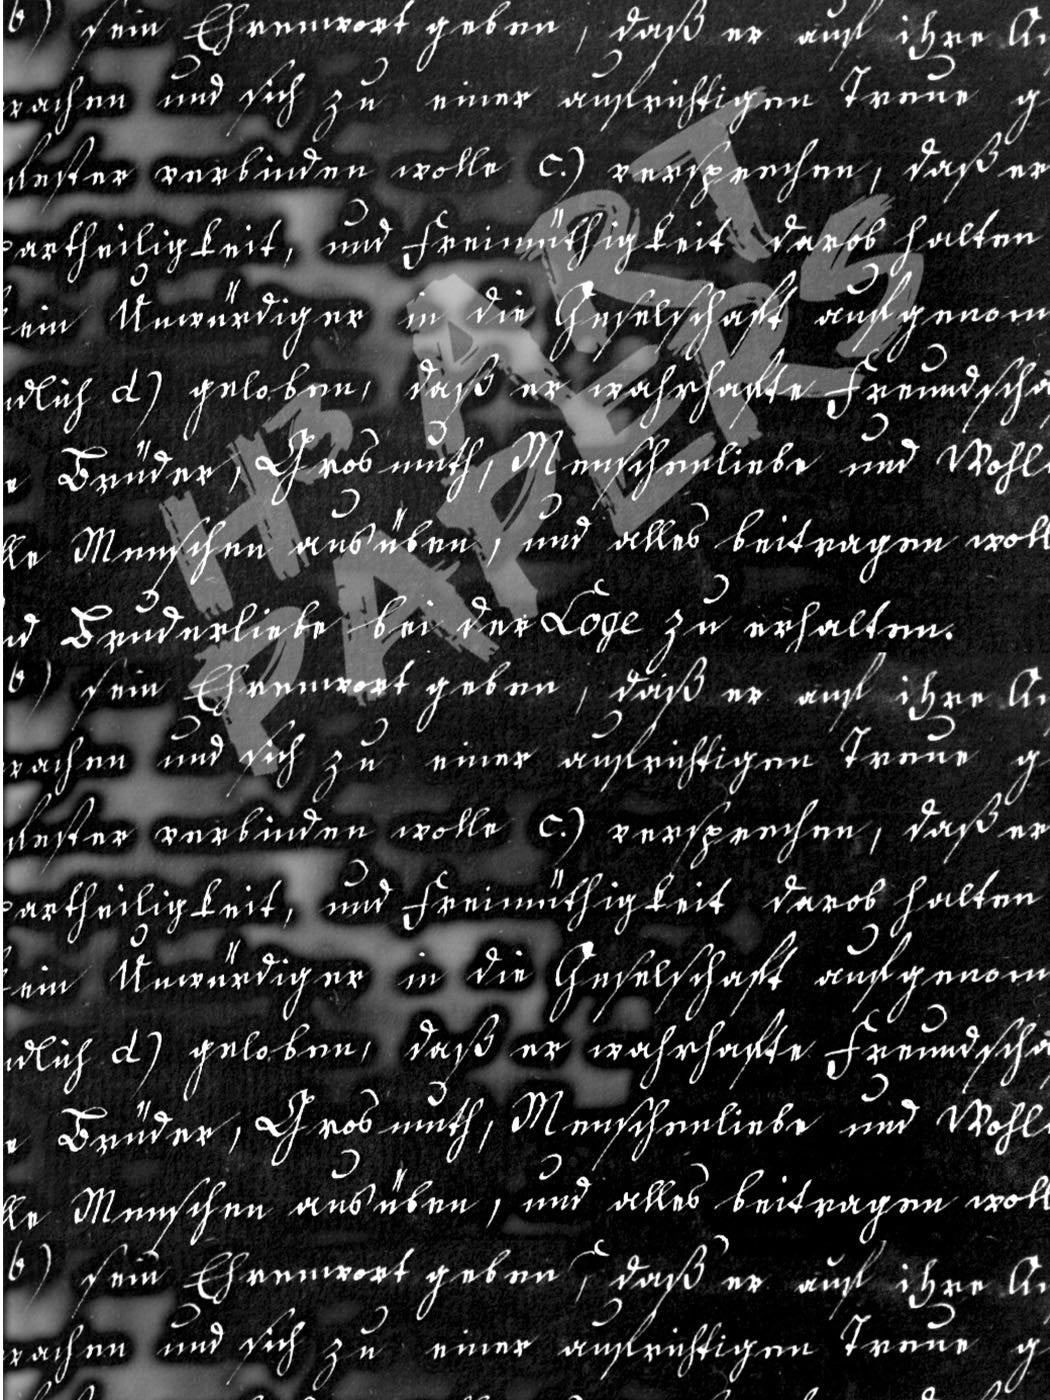 b) sein Ehrenwort geben, daß er auf ihre
machen und sich zu einer aufrichtigen Treue
verbinden wolle c.) versprechen, daß er
partheiligkeit, und Freimüthigkeit darob halten
kein Unwürdiger in die Geselschaft aufgenom
ndlich d) geloben, daß er wahrhafte Freundscha
Brüder, Grosmuth, Menschenliebe und Wohl
lle Menschen ausüben, und alles beitragen woll
nd Bruderliebe bei der Loge zu erhalten.
b) sein Ehrenwort geben, daß er auf ihre
machen und sich zu einer aufrichtigen Treue
verbinden wolle c.) versprechen, daß er
partheiligkeit, und Freimüthigkeit darob halten
kein Unwürdiger in die Geselschaft aufgenom
ndlich d) geloben, daß er wahrhafte Freundscha
Brüder, Grosmuth, Menschenliebe und Wohl
lle Menschen ausüben, und alles beitragen woll
b) sein Ehrenwort geben, daß er auf ihre
machen und sich zu einer aufrichtigen Treue
H3 ART'S
PAPERS